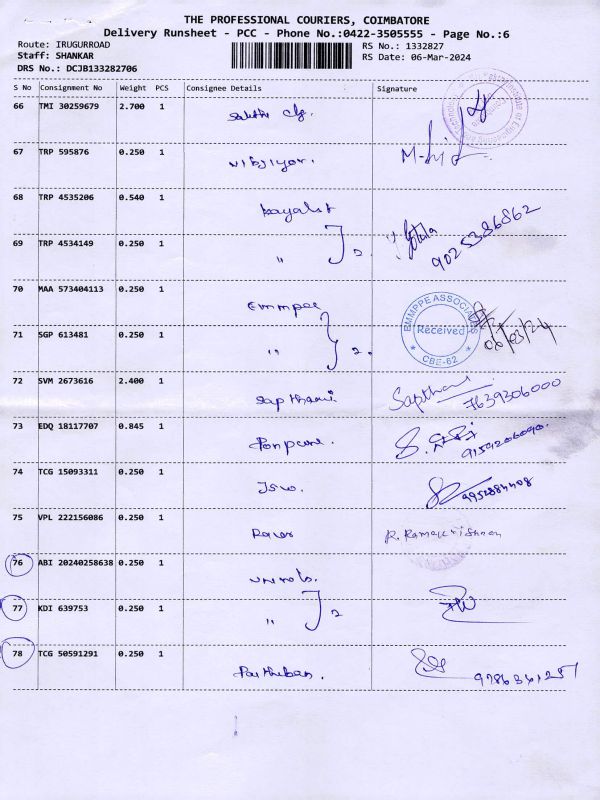 THE PROFESSIONAL COURIERS, COIMBATORE
Delivery Runsheet - PCC - Phone No.:0422-3505555 - Page No.:6
Route: IRUGURROAD
Staff: SHANKAR
DRS No.: DCJB133282706
RS No.: 1332827
RS Date: 06-Mar-2024
S No Consignment No Weight PCS Consignee Details Signature
66 TMI 30259679 2.700 1
67 TRP 595876 0.250 1 Vibjiyor.
68 TRP 4535206 0.540 1
69 TRP 4534149 0.250 1 " 2. 9025386862
70 MAA 573404113 0.250 1 Emmpee
EMMPPE ASSOCIATES Received CBE-62 06/03/24
71 SGP 613481 0.250 1 " 2.
72 SVM 2673616 2.400 1 Sapthami Sapthami
7639306000
73 EDQ 18117707 0.845 1 Ponpure.
74 TCG 15093311 0.250 1
75 VPL 222156086 0.250 1 R. Ramakrishnan
76 ABI 20240258638 0.250 1
77 KDI 639753 0.250 1 " 2
78 TCG 50591291 0.250 1 Parthiban.